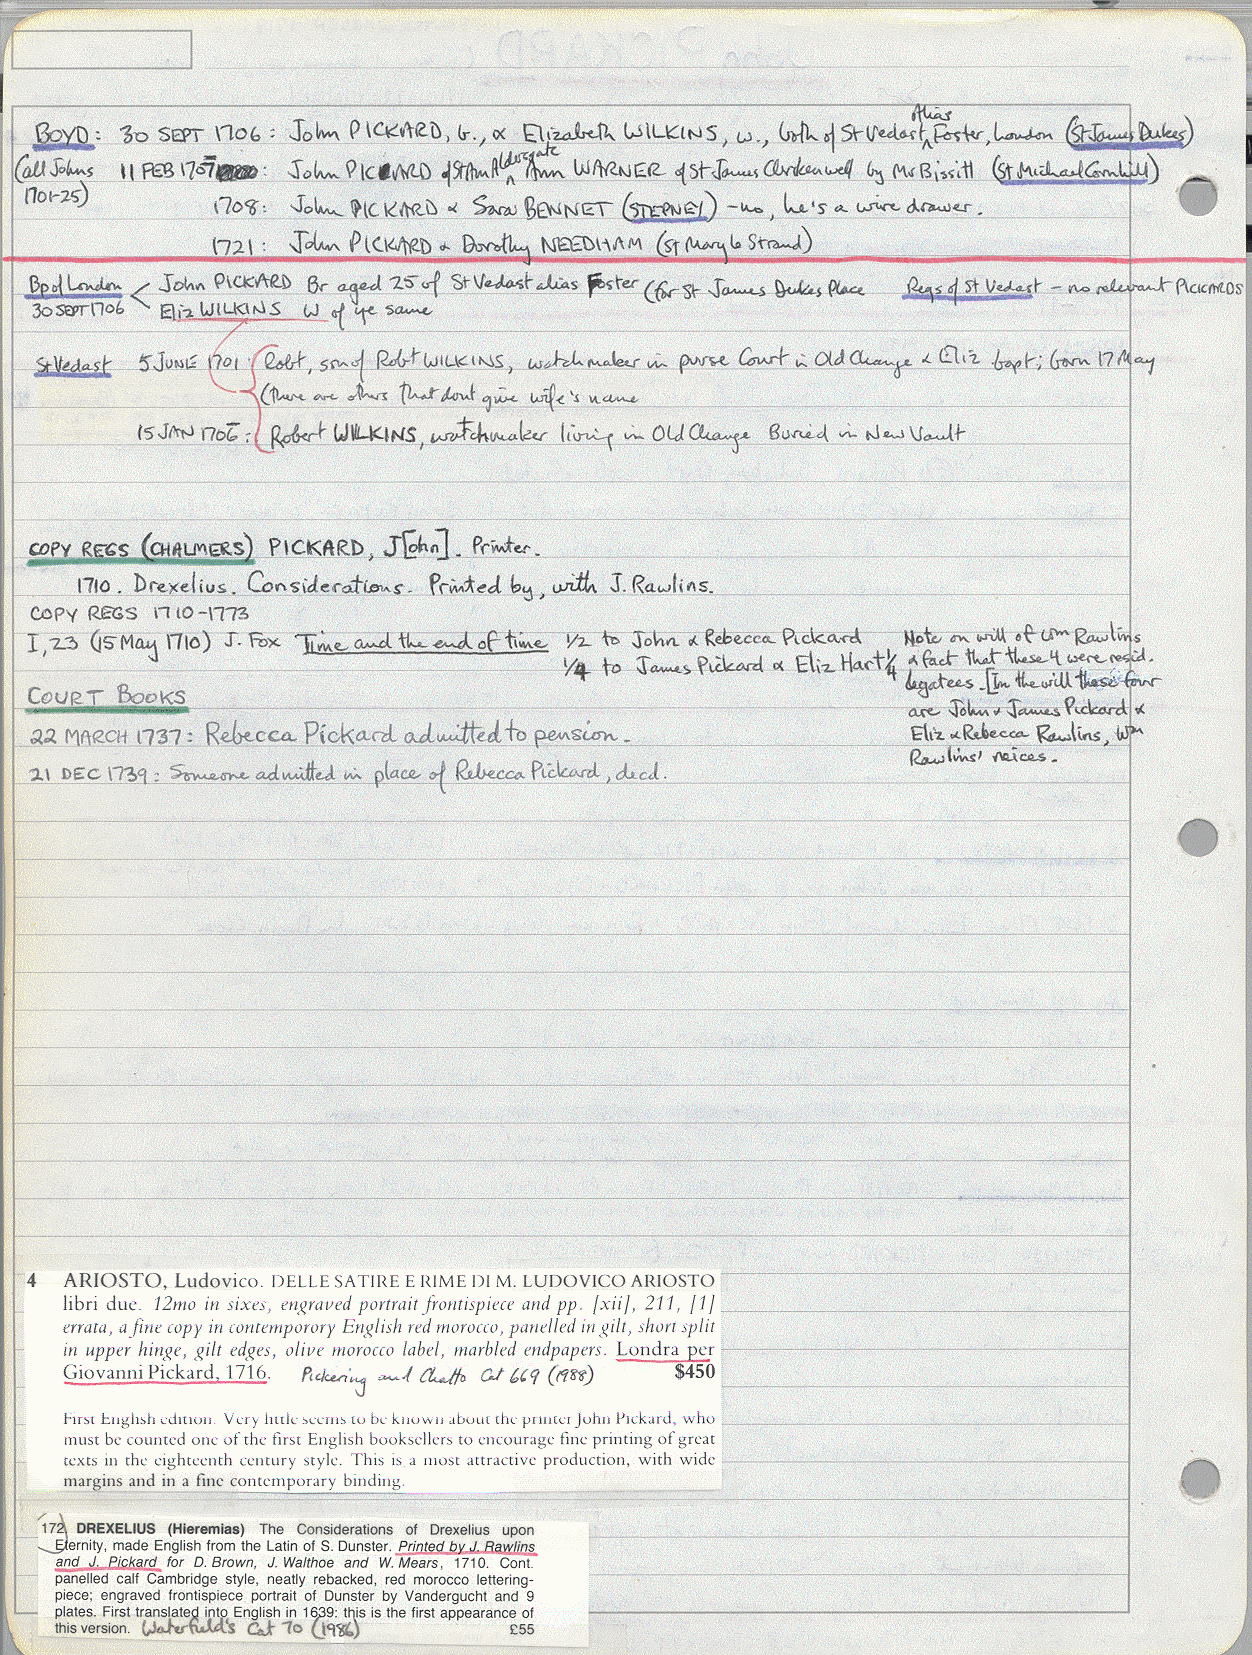 BOYD: 30 SEPT 1706: John PICKARD, b., & Elizabeth WILKINS, w., both of St Vedast Alias Foster, London (St James Dukes)
(all Johns 1701-25) 11 FEB 1707: John PICKARD of St Ann Aldersgate & Ann WARNER of St James Clerkenwell by Mr Bissitt (St Michael Cornhill)
1708: John PICKARD & Sara BENNET (STEPNEY) - no, he's a wire drawer.
1721: John PICKARD & Dorothy NEEDHAM (St Mary le Strand)
Bp of London 30 SEPT 1706 John PICKARD Br aged 25 of St Vedast alias Foster (for St James Dukes Place Regs of St Vedast - no relevant PICKARDS
Eliz WILKINS W of ye same
St Vedast 5 JUNE 1701: Robt, son of Robt WILKINS, watchmaker in purse Court in Old Change & Eliz bapt; born 17 May
(there are others that dont give wife's name
15 JAN 1706: Robert WILKINS, watchmaker living in Old Change Buried in New Vault
COPY REGS (CHALMERS) PICKARD, J[ohn]. Printer.
1710. Drexelius. Considerations. Printed by, with J. Rawlins.
COPY REGS 1710-1773
I, 23 (15 May 1710) J. Fox Time and the end of time 1/2 to John & Rebecca Pickard
1/4 to James Pickard & Eliz Hart 1/4
Note on will of Wm Rawlins
& fact that these 4 were resid.
legatees. [In the will these four
are John & James Pickard &
Eliz & Rebecca Rawlins, Wm
Rawlins' neices.
COURT BOOKS
22 MARCH 1737: Rebecca Pickard admitted to pension.
21 DEC 1739: Someone admitted in place of Rebecca Pickard, decd.
4 ARIOSTO, Ludovico. DELLE SATIRE E RIME DI M. LUDOVICO ARIOSTO
libri due. 12mo in sixes, engraved portrait frontispiece and pp. [xii], 211, [1]
errata, a fine copy in contemporory English red morocco, panelled in gilt, short split
in upper hinge, gilt edges, olive morocco label, marbled endpapers. Londra per
Giovanni Pickard, 1716. Pickering and Chatto Cat 669 (1988) $450
First English edition. Very little seems to be known about the printer John Pickard, who
must be counted one of the first English booksellers to encourage fine printing of great
texts in the eighteenth century style. This is a most attractive production, with wide
margins and in a fine contemporary binding.
172 DREXELIUS (Hieremias) The Considerations of Drexelius upon
Eternity, made English from the Latin of S. Dunster. Printed by J. Rawlins
and J. Pickard for D. Brown, J. Walthoe and W. Mears, 1710. Cont.
panelled calf Cambridge style, neatly rebacked, red morocco lettering-
piece; engraved frontispiece portrait of Dunster by Vandergucht and 9
plates. First translated into English in 1639: this is the first appearance of
this version. Waterfield's Cat 70 (1986) £55